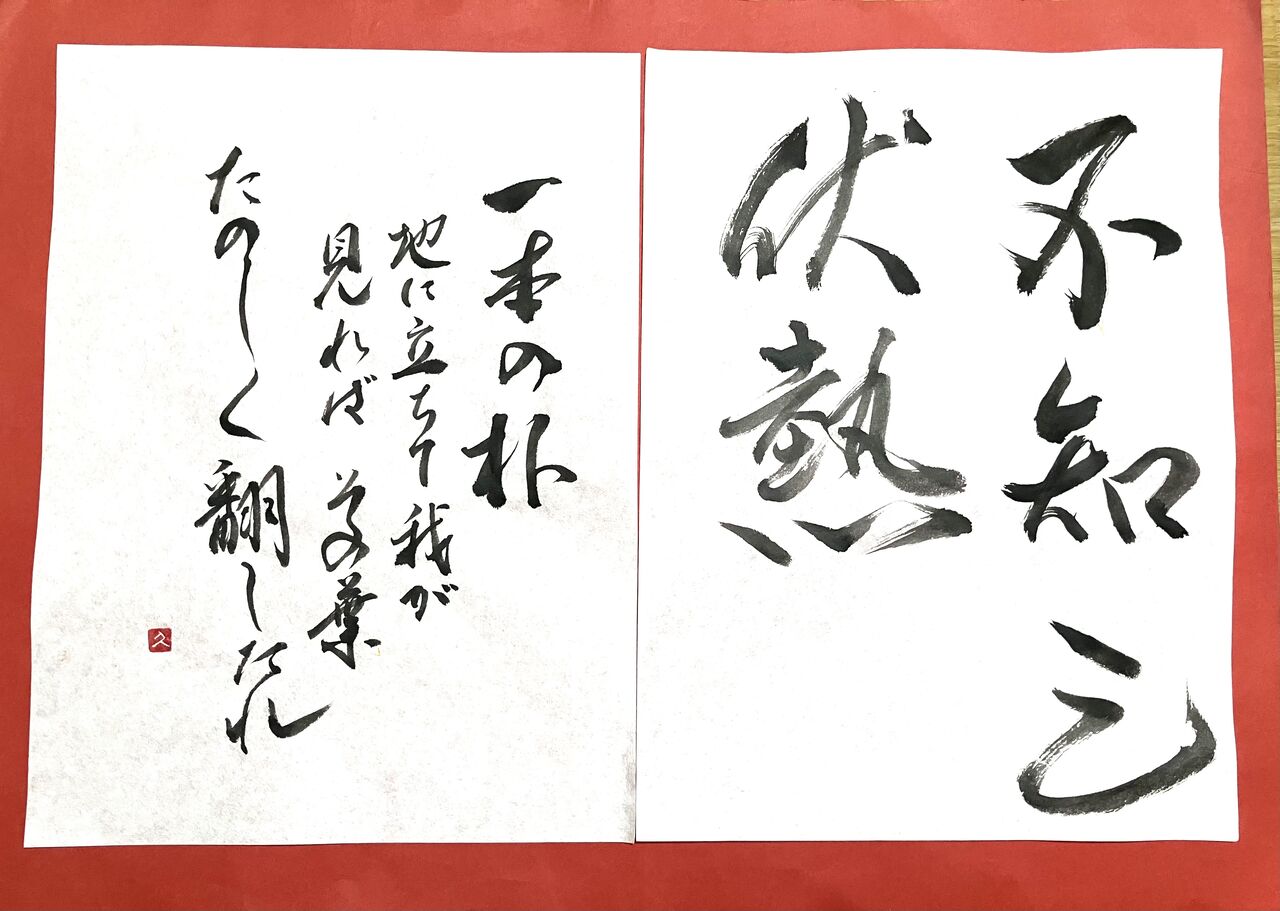 不知三
伏熱
一本の朴
地に立ちて我が
見れば その葉
たのしく翻したれ
久